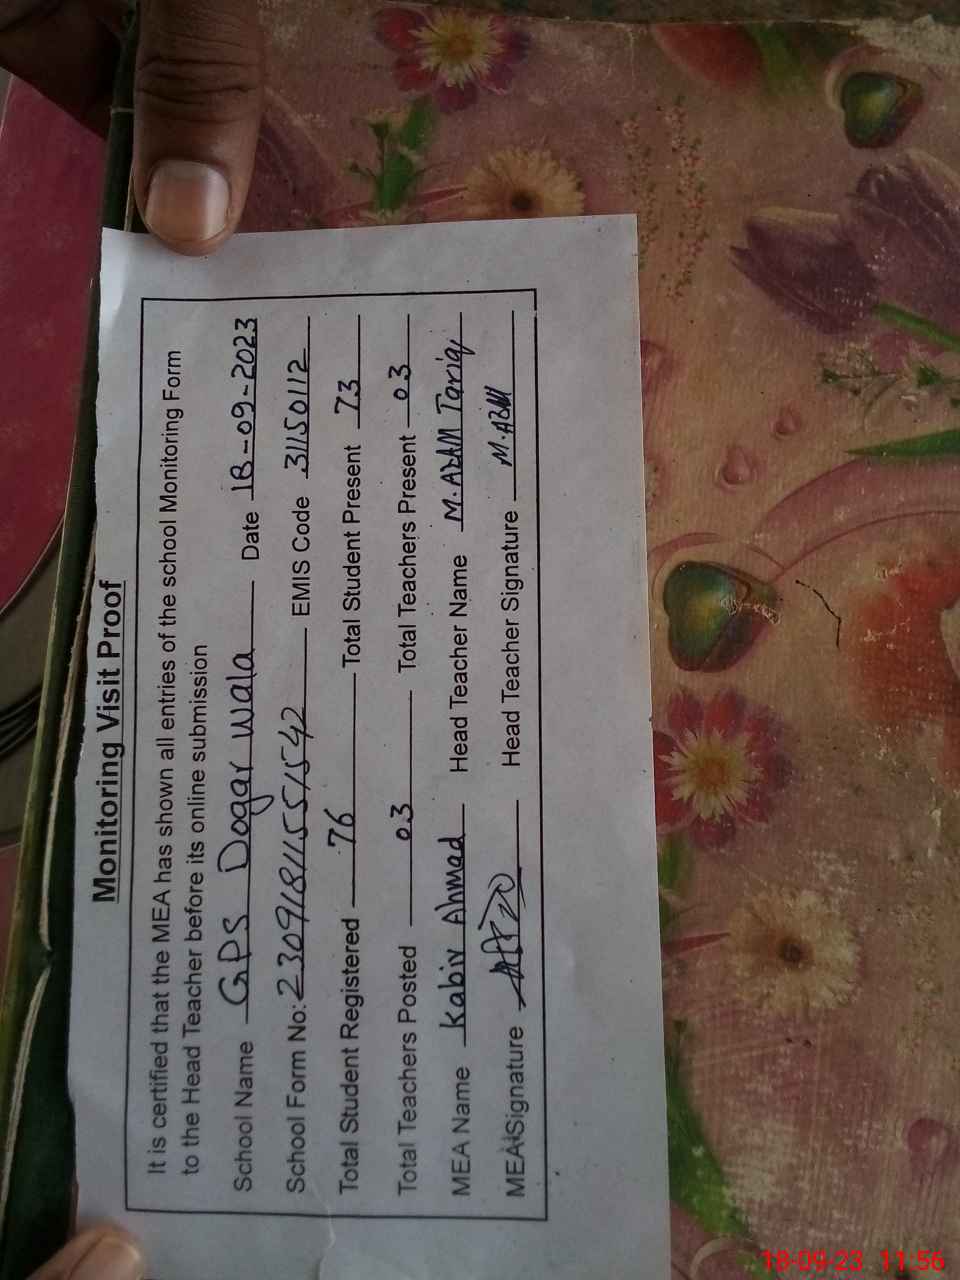 Monitoring Visit Proof
It is certified that the MEA has shown all entries of the school Monitoring Form
to the Head Teacher before its online submission
School Name GPS Dogar Wala Date 18-09-2023
School Form No: 23091811551542 EMIS Code 31150112
Total Student Registered 76 Total Student Present 73
Total Teachers Posted 03 Total Teachers Present 03
MEA Name Kabir Ahmad Head Teacher Name M.AZAM Tariq
MEA Signature Head Teacher Signature M.AZAM
18-09-23 11:56